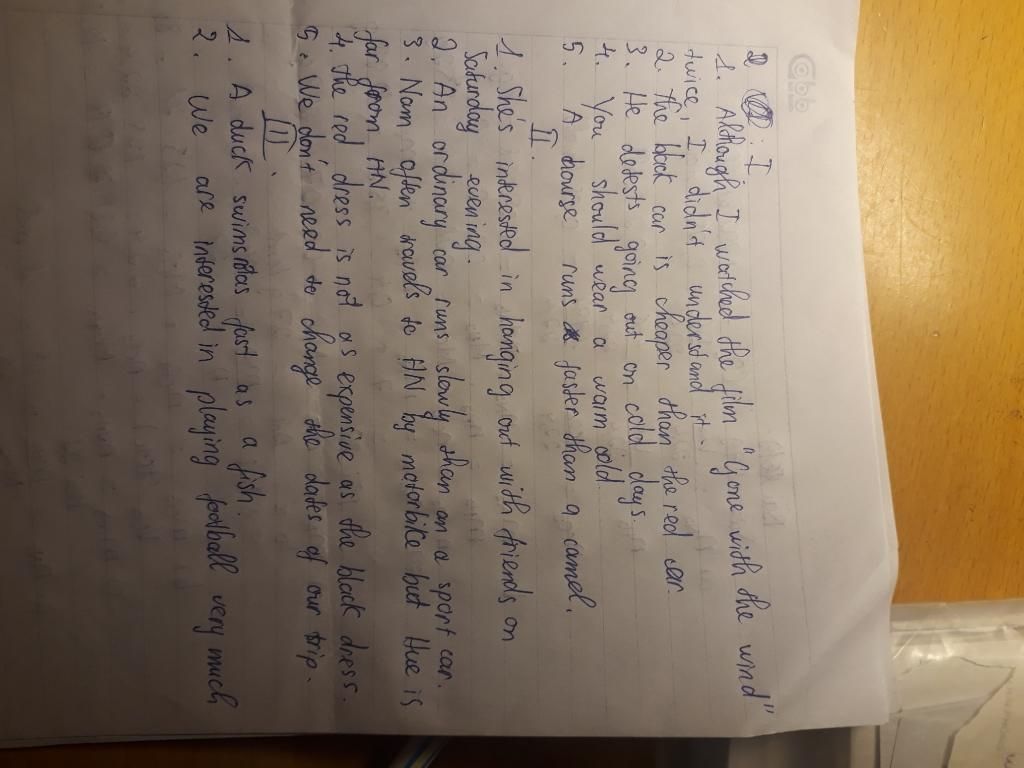 I
1. Although I watched the film "Gone with the wind"
twice, I didn't understand it.
2. the black car is cheaper than the red car.
3. He detests going out on cold days.
4. You should wear a warm
5. A horse runs faster than a camel.
II.
1. She's interested in hanging out with friends on
Saturday evening.
2. An ordinary car runs slowly than an a sport car.
3. Nam often travels to HN by motorbike but Hue is
far from HN.
4. the red dress is not as expensive as the black dress.
5. We don't need to change the dates of our trip.
III.
1. A duck swims as fast as a fish.
2. We are interested in playing football very much